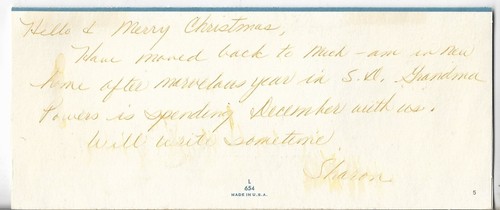 Hello & Merry Christmas,
Have moved back to Mich - am in new
home after marvelous year in S.D. Grandma
Powers is spending December with us.
Will write sometime
Sharon
L
654
MADE IN U.S.A.
5